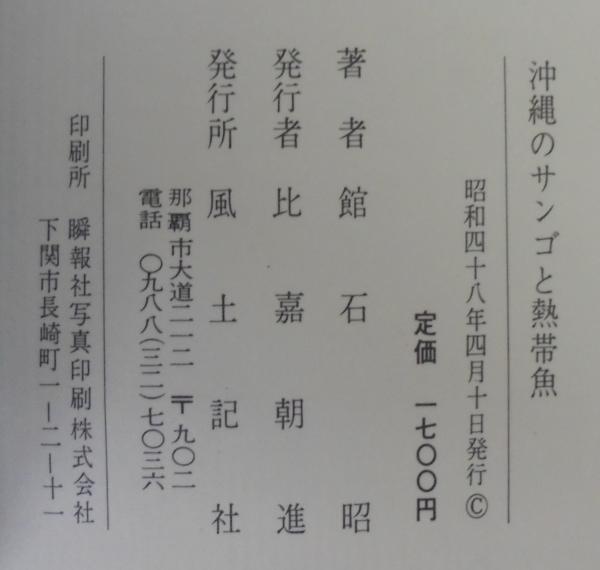 沖縄のサンゴと熱帯魚
昭和四十八年四月十日発行 ©
定価 一七〇〇円
著者 館石昭
発行者 比嘉朝進
発行所 風土記社
那覇市大道二一二 〒九〇二
電話 〇九八八(三二)七〇三六
印刷所 瞬報社写真印刷株式会社
下関市長崎町一ー二ー十一